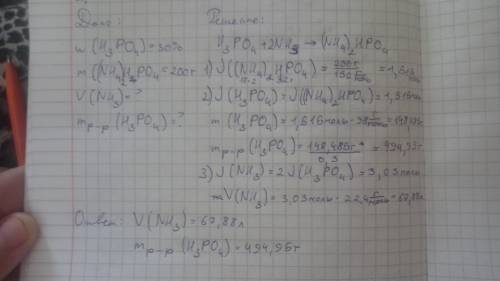 Дано:
w(H3PO4)=30%
m((NH4)2HPO4=200г
V(NH3)=?
mр-р(H3PO4)=?
Решение:
H3PO4+2NH3→(NH4)2HPO4
1) ν((NH4)2HPO4)= =1,515
2) ν(H3PO4)=ν((NH4)2HPO4)=1,515моль
m(H3PO4)=1,515моль·98г/моль=148,485г
mр-р(H3PO4)=148,485г/0,3=494,95г
3) ν(NH3)=2ν(H3PO4)=3,03моль
V(NH3)=3,03моль·22,4 =67,88л
Ответ: V(NH3)=67,88л
mр-р(H3PO4)=494,95г